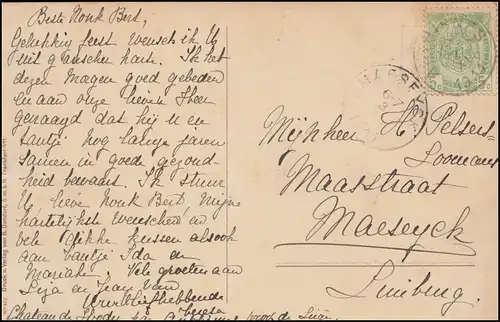 Beste Nonk Bert,
Gelukkig feest wensch ik U
uit ganscher harte. Ik heb
dezen Morgen goed gebeden
en aan onze lieven Heer
gevraagd dat hij U en
tantje nog lange jaren
samen in goede gezond
heid bewaart. Ik stuur
U, lieve Nonk Bert, mijne
hartelijkste wenschen en
vele dikke kussen alsook
aan tantje Ida en
Marieke. Vele groeten aan
Liza en Jean van
Uw liefhebbende
Chateau de
MAESEYCK
Mijnheer H. Pelsers-
Loomans
Maasstraat
Maeseyck
Limburg.